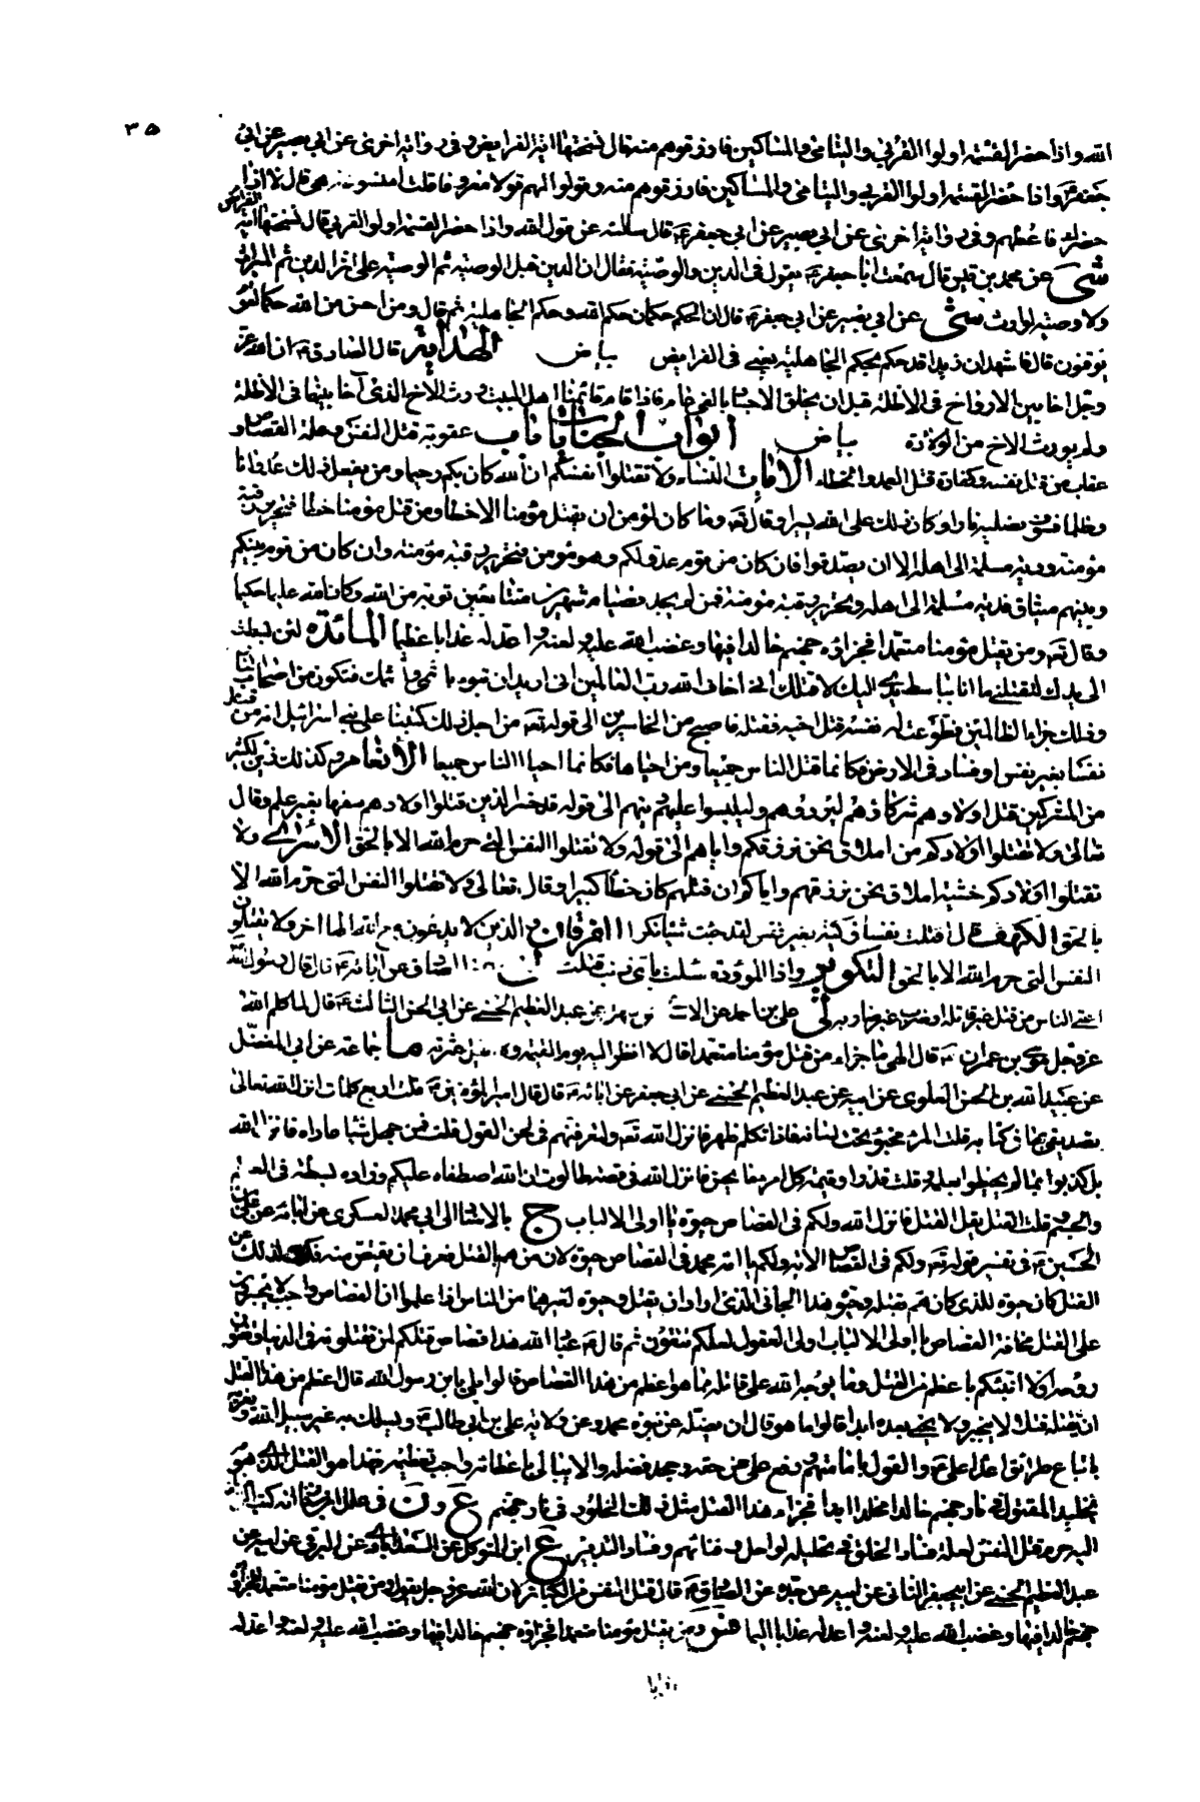 ٣٥
الله واذا حضر القسمة اولوا القربى واليتامى والمساكين فارزقوهم منه قال نسختها اية الفرايض وفى رواية اخرى عن ابي بصير عن ابي
جعفر ع واذا حضر القسمة اولوا القربى واليتامى والمساكين فارزقوهم منه وقولوا لهم قولا معروفا قلت امنسوخة هى قال لا اذا
حضرك فاعطهم وفى رواية اخرى عن ابي بصير عن ابي جعفر ع قال سالته عن قول الله واذا حضر القسمة اولوا القربى قال نسختها اية
الفرايض
شى عن محمد بن قيس قال سمعت ابا جعفر ع يقول فى الدين والوصية فقال ان الدين قبل الوصية ثم الوصية على اثر الدين ثم الميراث
ولا وصية لوارث شى عن ابي بصير عن ابي جعفر ع قال ان الحكم حكمان حكم الله وحكم الجاهلية ثم قال ومن احسن من الله حكما لقوم
يوقنون قال فاشهد ان زيدا قد حكم بحكم الجاهلية يعنى فى الفرايض بياض الهداية قال الصادق ع ان الله عز
وجل اخا بين الارواح فى الاظلة قبل ان يخلق الاجساد بالفى عام فاذا قام قائمنا اهل البيت ورث الاخ الذى آخا بينهما فى الاظلة
ولم يورث الاخ من الولادة بياض ابواب الجنايات باب عقوبة قتل النفس وعلة القصاص و
عقاب من قتل نفسه وكفارة قتل العمد والخطاء الايات النساء ولا تقتلوا انفسكم ان الله كان بكم رحيما ومن يفعل ذلك عدوانا
وظلما فسوف نصليه نارا وكان ذلك على الله يسيرا وقال تع وما كان لمؤمن ان يقتل مؤمنا الا خطأ ومن قتل مؤمنا خطأ فتحرير رقبة
مؤمنة ودية مسلمة الى اهله الا ان يصدقوا فان كان من قوم عدو لكم وهو مؤمن فتحرير رقبة مؤمنة وان كان من قوم بينكم
وبينهم ميثاق فدية مسلمة الى اهله وتحرير رقبة مؤمنة فمن لم يجد فصيام شهرين متتابعين توبة من الله وكان الله عليما حكيما
وقال تع ومن يقتل مؤمنا متعمدا فجزاؤه جهنم خالدا فيها وغضب الله عليه ولعنه واعد له عذابا عظيما المائدة لئن بسطت
الى يدك لتقتلنى ما انا بباسط يدى اليك لاقتلك انى اخاف الله رب العالمين انى اريد ان تبوء باثمى واثمك فتكون من اصحاب النار
وذلك جزاء الظالمين فطوعت له نفسه قتل اخيه فقتله فاصبح من الخاسرين الى قوله تع من اجل ذلك كتبنا على بنى اسرائيل انه من قتل
نفسا بغير نفس او فساد فى الارض فكانما قتل الناس جميعا ومن احياها فكانما احيا الناس جميعا الانعام وكذلك زين لكثير
من المشركين قتل اولادهم شركاؤهم ليردوهم وليلبسوا عليهم دينهم الى قوله قد خسر الذين قتلوا اولادهم سفها بغير علم وقال
تعالى ولا تقتلوا اولادكم من املاق نحن نرزقكم واياهم الى قوله ولا تقتلوا النفس التى حرم الله الا بالحق الاسرى ولا
تقتلوا اولادكم خشية املاق نحن نرزقهم واياكم ان قتلهم كان خطأ كبيرا وقال تعالى ولا تقتلوا النفس التى حرم الله الا
بالحق الكهف قال اقتلت نفسا زكية بغير نفس لقد جئت شيئا نكرا الفرقان والذين لا يدعون مع الله الها اخر ولا يقتلون
النفس التى حرم الله الا بالحق التكوير واذا الموؤدة سئلت باى ذنب قتلت ن الصادق عن آبائه ع قال قال رسول الله
اعتى الناس من قتل غير قاتله او ضرب غير ضاربه لى على بن احمد عن عبد العظيم الحسنى عن ابي الحسن الثالث ع قال لما كلم الله
عز وجل موسى بن عمران ع قال الهى ما جزاء من قتل مؤمنا متعمدا قال لا انظر اليه يوم القيمة و عثرته ما جماعة عن ابي المفضل
عن عبيد الله بن الحسن العلوى عن ابيه عن عبد العظيم الحسنى عن ابي جعفر عن ابائه ع قال قال امير المؤمنين ع قلت اربع كلمات انزل الله تعالى
تصديقى بها فى كتابه قلت المرء مخبو تحت لسانه فاذا تكلم ظهر فانزل الله تع ولتعرفنهم فى لحن القول قلت فمن جهل شيئا عاداه فانزل الله
بل كذبوا بما لم يحيطوا بعلمه وقلت قدر او قيمة كل امرء ما يحسن فانزل الله فى قصة طالوت ان الله اصطفاه عليكم وزاده بسطة فى العلم
والجسم قلت القتل يقل القتل فانزل الله ولكم فى القصاص حيوة يا اولى الالباب ج بالاسناد الى ابي محمد العسكرى عن آبائه عن على بن
الحسين ع فى تفسير قوله تع ولكم فى القصاص الاية ولكم يا امة محمد فى القصاص حيوة لان من هم بالقتل فعرف ان يقتص منه فكف لذلك عن
القتل كان حيوة للذى كان هم بقتله وحيوة لهذا الجانى الذى اراد ان يقتل وحيوة لغيرهما من الناس اذا علموا ان القصاص واجب لا يجسرون
على القتل مخافة القصاص يا اولى الالباب اولى العقول لعلكم تتقون ثم قال ع عباد الله هذا قصاص قتلكم لمن تقتلونه فى الدنيا وتفنون
روحه اولا انبئكم باعظم من القتل وما يوجب الله على قاتله مما هو اعظم من هذا القصاص قالوا بلى يا بن رسول الله قال اعظم من هذا القتل
ان تقتله قتلا لا يجبر ولا يحيى بعده ابدا قالوا ما هو قال ان يضله عن نبوة محمد وعن ولاية على بن ابي طالب ع ويسلك به غير سبيل الله ويغريه
باتباع طرائق اعداء على ع والقول بامامتهم ودفع على عن حقه وجحد فضله والا يبالى باعطائه واجب تعظيمه فهذا هو القتل الذى هو
تخليد المقتول فى نار جهنم خالدا مخلدا ابدا فجزاء هذا القتل مثل ذلك الخلود فى نار جهنم ع ون فى علل ابن سنان انه كتب الرضا
اليه حرم قتل النفس لعلة فساد الخلق فى تحليله لو احل وفنائهم وفساد التدبير ع ابن المتوكل عن السعدابادى عن البرقى عن ابيه عن
عبد العظيم الحسنى عن ابي جعفر الثانى عن ابيه عن جده عن الصادق ع قال قتل النفس من الكبائر لان الله عز وجل يقول ومن يقتل مؤمنا متعمدا فجزاؤه
جهنم خالدا فيها وغضب الله عليه ولعنه واعد له عذابا اليما ومن يقتل مؤمنا متعمدا فجزاؤه جهنم خالدا فيها وغضب الله عليه ولعنه واعد له